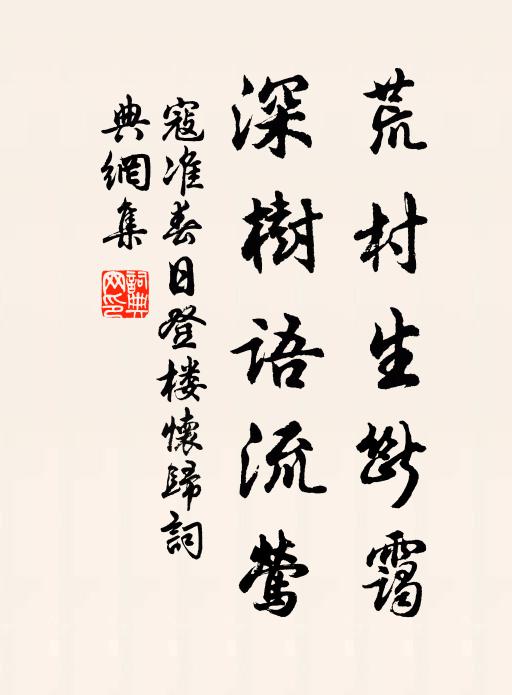 荒村生断靄
深樹語流鶯
寇准春日登楼懷歸詞
典網集
詞典網印